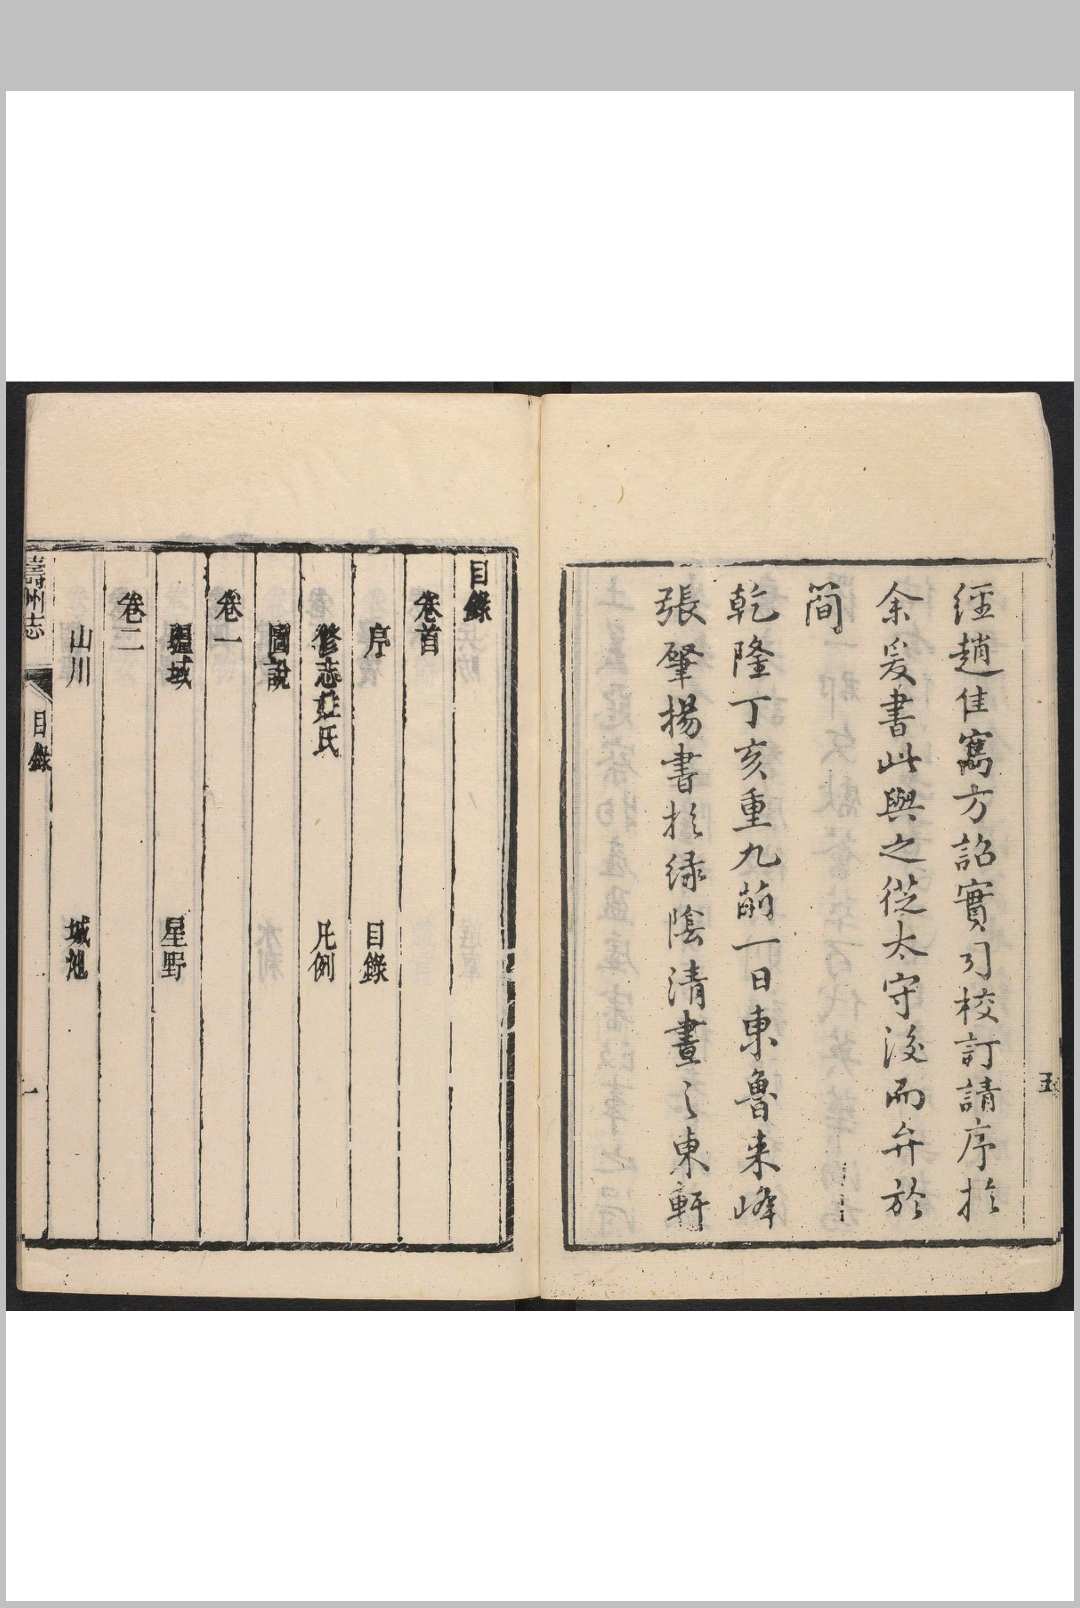 經趙佳寯方詔實引校訂請序於
余爰書此與之從太守後而弁於
簡
乾隆丁亥重九前一日東魯来峰
張肇揚書於緑陰清晝之東軒
五
目錄
卷首
序 目錄
修志姓氏 凡例
圖說
卷一
疆域 星野
卷二
山川 城池
壽州志
目錄
一